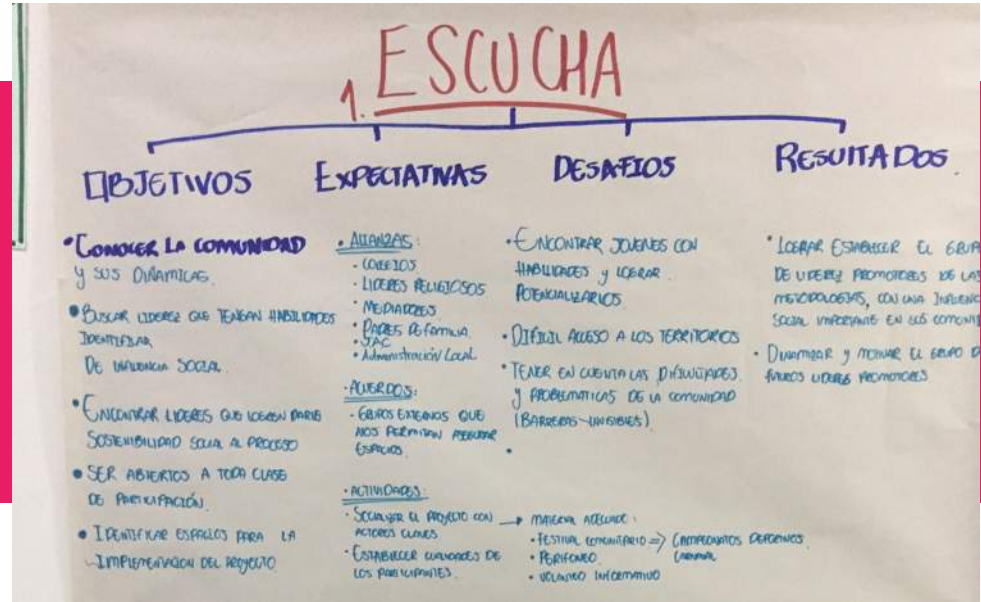 1. ESCUCHA
OBJETIVOS
• CONOCER LA COMUNIDAD
Y SUS DINAMICAS.
• BUSCAR LIDEREZ QUE TENGAN HABILIDADES
IDENTIFICAR
DE INFLUENCIA SOCIAL.
• ENCONTRAR LIDERES QUE LOGREN DARLE
SOSTENIBILIDAD SOCIAL AL PROCESO
• SER ABIERTOS A TODA CLASE
DE PARTICIPACIÓN.
• IDENTIFICAR ESPACIOS PARA LA
IMPLEMENTACION DEL PROYECTO
EXPECTATIVAS
• ALIANZAS:
- COLEGIOS
- LIDERES RELIGIOSOS
• MEDIADORES
• PADRES DE FAMILIA
• JAC
• Administración Local
• ACUERDOS:
- GRUPOS EXTERNOS QUE
NOS PERMITAN ASEGURAR
ESPACIOS.
• ACTIVIDADES:
- SOCIALIZAR EL PROYECTO CON → MATERIAL ADECUADO:
ACTORES CLAVES
• FESTIVAL COMUNITARIO => CAMPEONATOS DEPORTIVOS
• PERIFONEO
• VOLANTEO INFORMATIVO
- ESTABLECER CUALIDADES DE
LOS PARTICIPANTES.
DESAFIOS
• ENCONTRAR JOVENES CON
HABILIDADES Y LOGRAR
POTENCIALIZARLOS.
• DIFICIL ACCESO A LOS TERRITORIOS
• TENER EN CUENTA LAS DIFICULTADES
Y PROBLEMATICAS DE LA COMUNIDAD
(BARRERAS - INVISIBLES)
RESULTADOS.
• LOGRAR ESTABLECER EL
DE LIDEREZ PROMOTORES DE LAS
METODOLOGIAS, CON UNA
SOCIAL IMPORTANTE EN SUS
• DINAMIZAR Y MOTIVAR EL GRUPO
FUTUROS LIDERES PROMOTORES